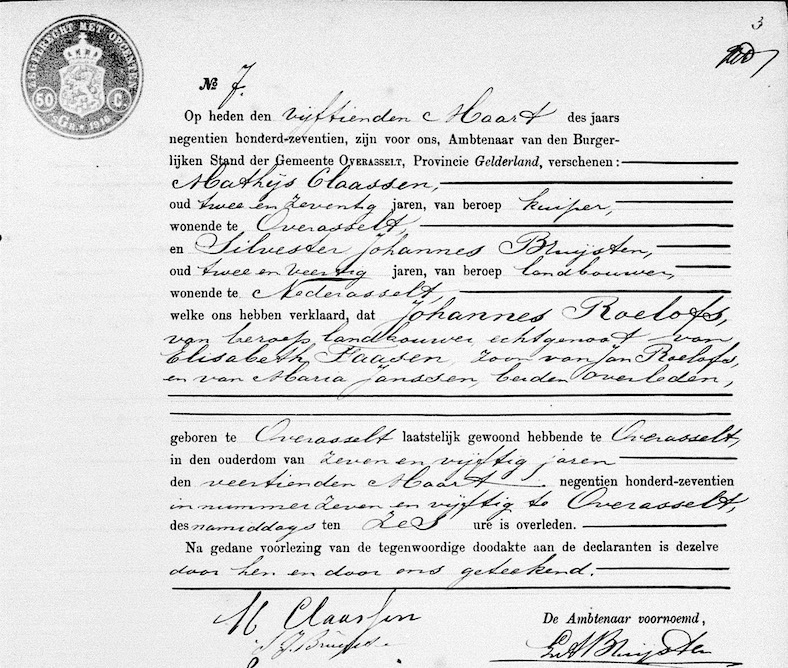 3
ZEGELRECHT MET OPCENTEN
50 C.
No 7.
Op heden den vijftienden Maart des jaars
negentien honderd-zeventien, zijn voor ons, Ambtenaar van den Burger-
lijken Stand der Gemeente OVERASSELT, Provincie Gelderland, verschenen:
Mathijs Claassen,
oud twee en zeventig jaren, van beroep kuiper,
wonende te Overasselt,
en Silvester Johannes Bruijsten,
oud twee en veertig jaren, van beroep landbouwer,
wonende te Nederasselt,
welke ons hebben verklaard, dat Johannes Roelofs,
van beroep landbouwer echtgenoot van
Elisabeth Faasen, zoon van Jan Roelofs,
en van Maria Janssen, beiden overleden,
geboren te Overasselt laatstelijk gewoond hebbende te Overasselt,
in den ouderdom van zeven en vijftig jaren
den veertienden Maart negentien honderd-zeventien
in nummer zeven en vijftig te Overasselt,
des namiddags ten zes ure is overleden.
Na gedane voorlezing van de tegenwoordige doodakte aan de declaranten is dezelve
door hen en door ons geteekend.
M Claassen
De Ambtenaar voornoemd,
S J Bruijsten
Bruijsten